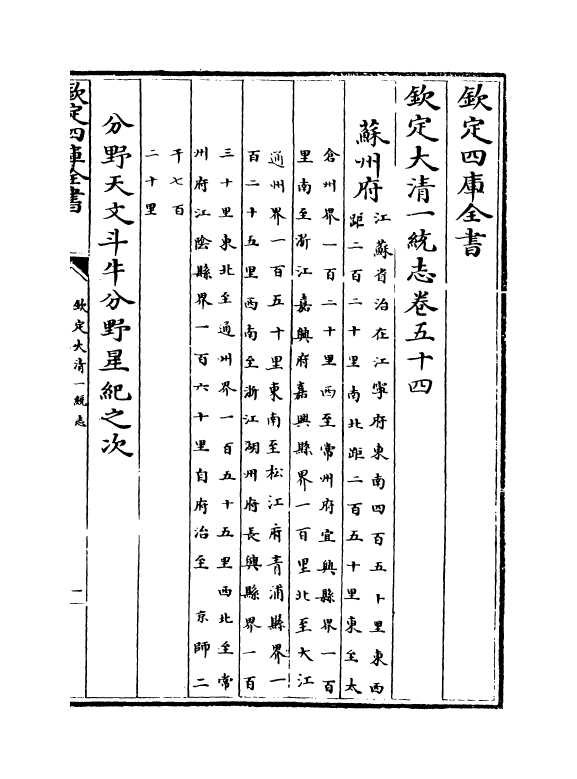 欽定四庫全書
欽定大清一統志卷五十四
蘇州府
江蘇省治在江寧府東南四百五十里東西
距二百二十里南北距二百五十里東至太
倉州界一百二十里西至常州府宜興縣界一百
里南至浙江嘉興府嘉興縣界一百里北至大江
通州界一百五十里東南至松江府青浦縣界一
百二十五里西南至浙江湖州府長興縣界一百
三十里東北至通州界一百五十五里西北至常
州府江陰縣界一百六十里自府治至 京師二
千七百
二十里
分野天文斗牛分野星紀之次
欽定四庫全書
欽定大清一統志
二